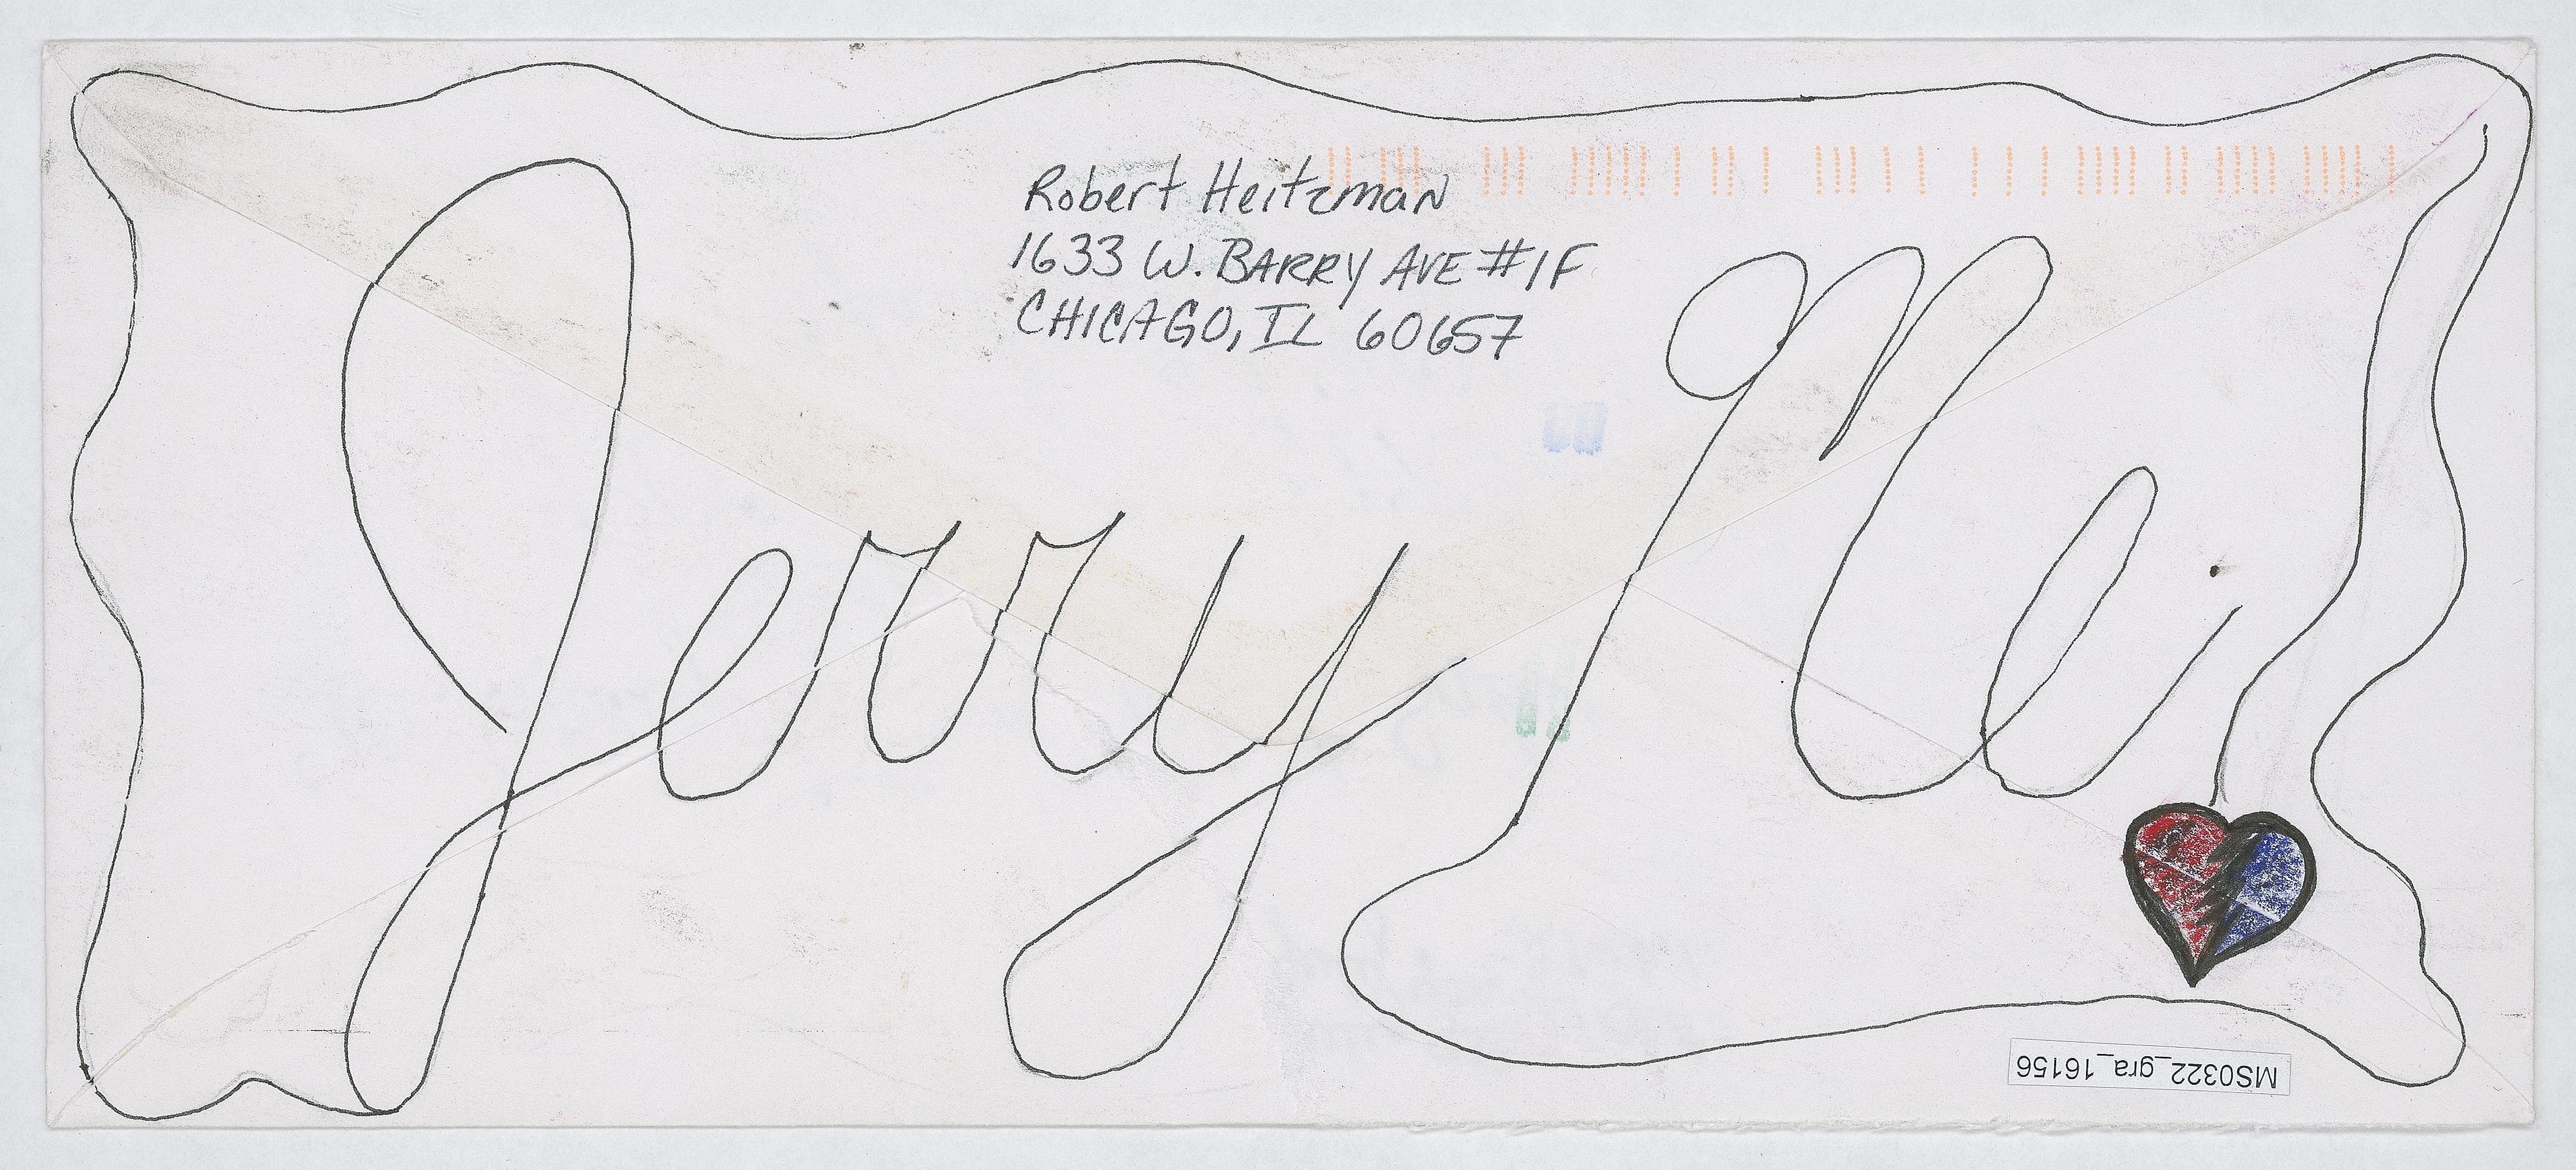 Robert Heitzman
1633 W. BARRY AVE #1F
CHICAGO, IL 60657
Jerry
MS0322_gra_16156